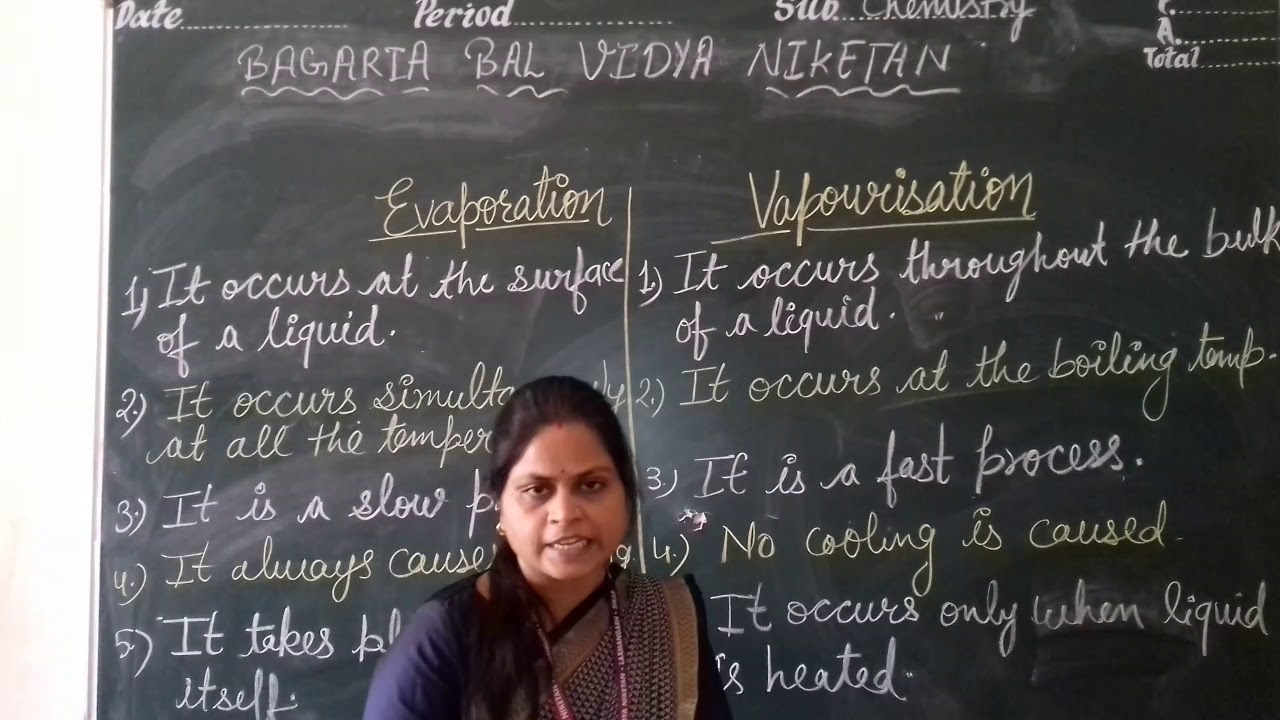 Date
Period
Sub. Chemistry
A.
Total
BAGARIA BAL VIDYA NIKETAN
Evaporation
1) It occurs at the surface
of a liquid.
2.) It occurs
at all the
3.) It is a slow
4.) It always
5) It takes
itself.
Vapourisation
1.) It occurs throughout the bulk
of a liquid.
2.) It occurs at the boiling temp.
3.) It is a fast process.
4.) No cooling is caused.
It occurs only when liquid
is heated.